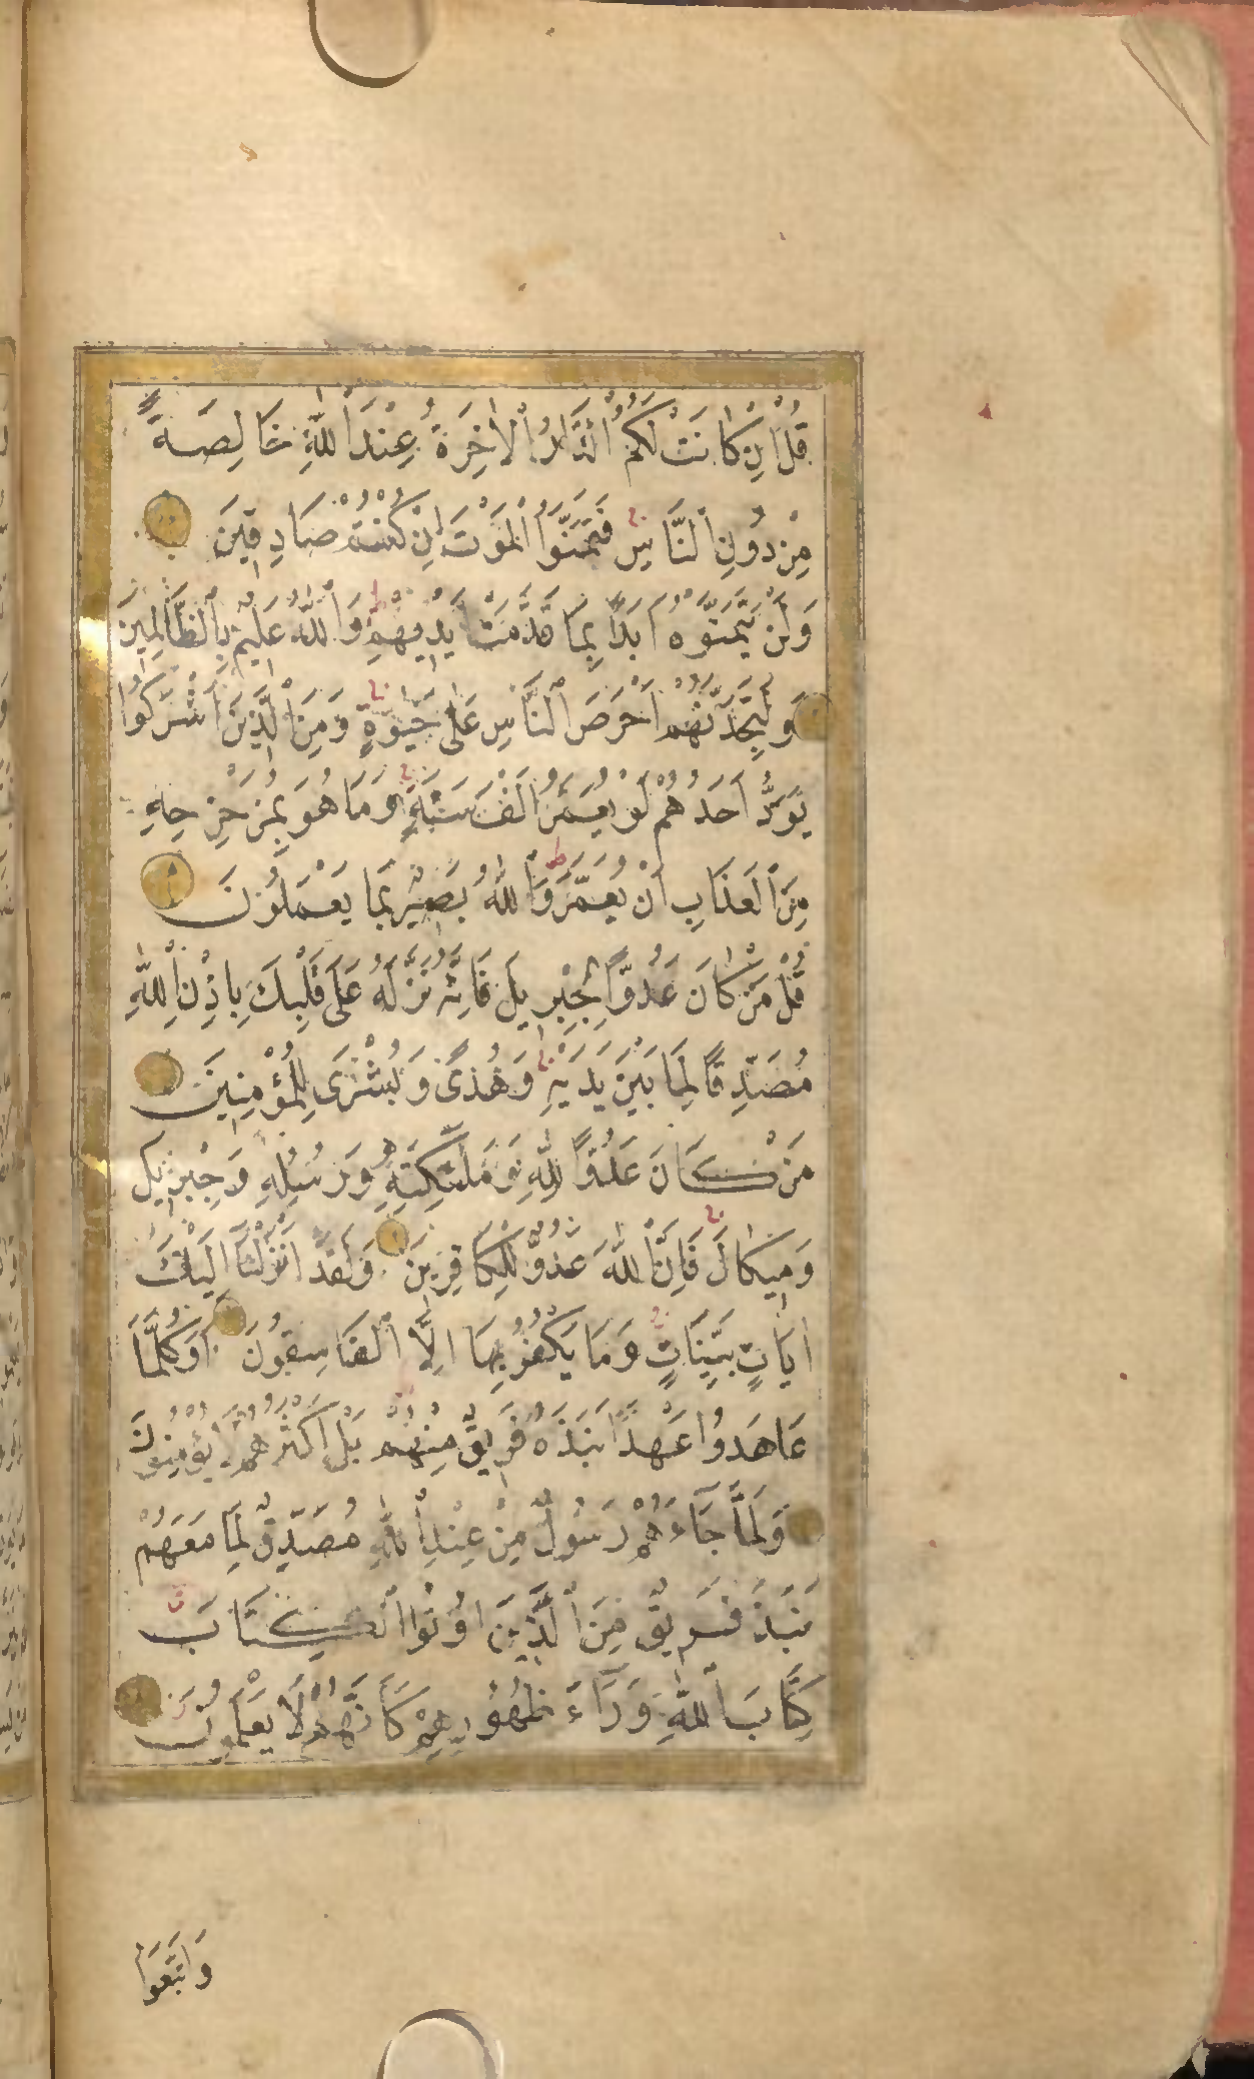 قُلْ اِنْ كَانَتْ لَكُمُ ٱلدَّارُ ٱلْاٰخِرَةُ عِنْدَ ٱللّٰهِ خَالِصَةً
مِنْ دُونِ ٱلنَّاسِ فَتَمَنَّوُا ٱلْمَوْتَ اِنْ كُنْتُمْ صَادِقِينَ
وَلَنْ يَتَمَنَّوْهُ اَبَدًا بِمَا قَدَّمَتْ اَيْدِيهِمْ ط وَٱللّٰهُ عَلِيمٌ بِٱلظَّالِمِينَ
وَلَتَجِدَنَّهُمْ اَحْرَصَ ٱلنَّاسِ عَلٰى حَيٰوةٍ وَمِنَ ٱلَّذِينَ اَشْرَكُوا
يَوَدُّ اَحَدُهُمْ لَوْ يُعَمَّرُ اَلْفَ سَنَةٍ وَمَا هُوَ بِمُزَحْزِحِهِ
مِنَ ٱلْعَذَابِ اَنْ يُعَمَّرَ ط وَٱللّٰهُ بَصِيرٌ بِمَا يَعْمَلُونَ
قُلْ مَنْ كَانَ عَدُوًّا لِجِبْرِيلَ فَاِنَّهُ نَزَّلَهُ عَلٰى قَلْبِكَ بِاِذْنِ ٱللّٰهِ
مُصَدِّقًا لِمَا بَيْنَ يَدَيْهِ وَهُدًى وَبُشْرٰى لِلْمُؤْمِنِينَ
مَنْ كَانَ عَدُوًّا لِلّٰهِ وَمَلٰئِكَتِهِ وَرُسُلِهِ وَجِبْرِيلَ
وَمِيكَالَ فَاِنَّ ٱللّٰهَ عَدُوٌّ لِلْكَافِرِينَ وَلَقَدْ اَنْزَلْنَا اِلَيْكَ
اٰيَاتٍ بَيِّنَاتٍ وَمَا يَكْفُرُ بِهَا اِلَّا ٱلْفَاسِقُونَ اَوَكُلَّمَا
عَاهَدُوا عَهْدًا نَبَذَهُ فَرِيقٌ مِنْهُمْ بَلْ اَكْثَرُهُمْ لَا يُؤْمِنُونَ
وَلَمَّا جَاءَهُمْ رَسُولٌ مِنْ عِنْدِ ٱللّٰهِ مُصَدِّقٌ لِمَا مَعَهُمْ
نَبَذَ فَرِيقٌ مِنَ ٱلَّذِينَ اُوتُوا ٱلْكِتَابَ
كِتَابَ ٱللّٰهِ وَرَاءَ ظُهُورِهِمْ كَاَنَّهُمْ لَا يَعْلَمُونَ
وَاتَّبَعَوُا